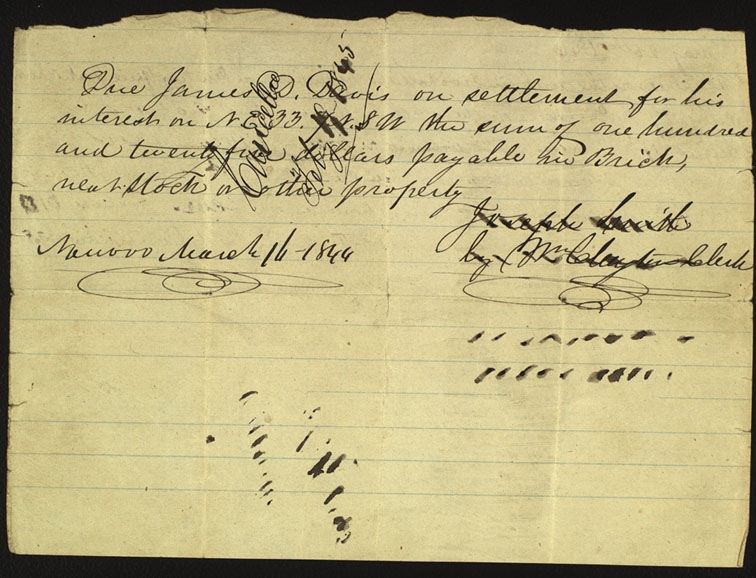 Due James D. Davis on settlement for his
interest on N.E. 33. N. 8 W the sum of one hundred
and twenty five dollars payable in Brick,
neat Stock or other property
Joseph Smith
by Wm Clayton Clerk
Nauvoo March 16-1844
Cancelled
1845